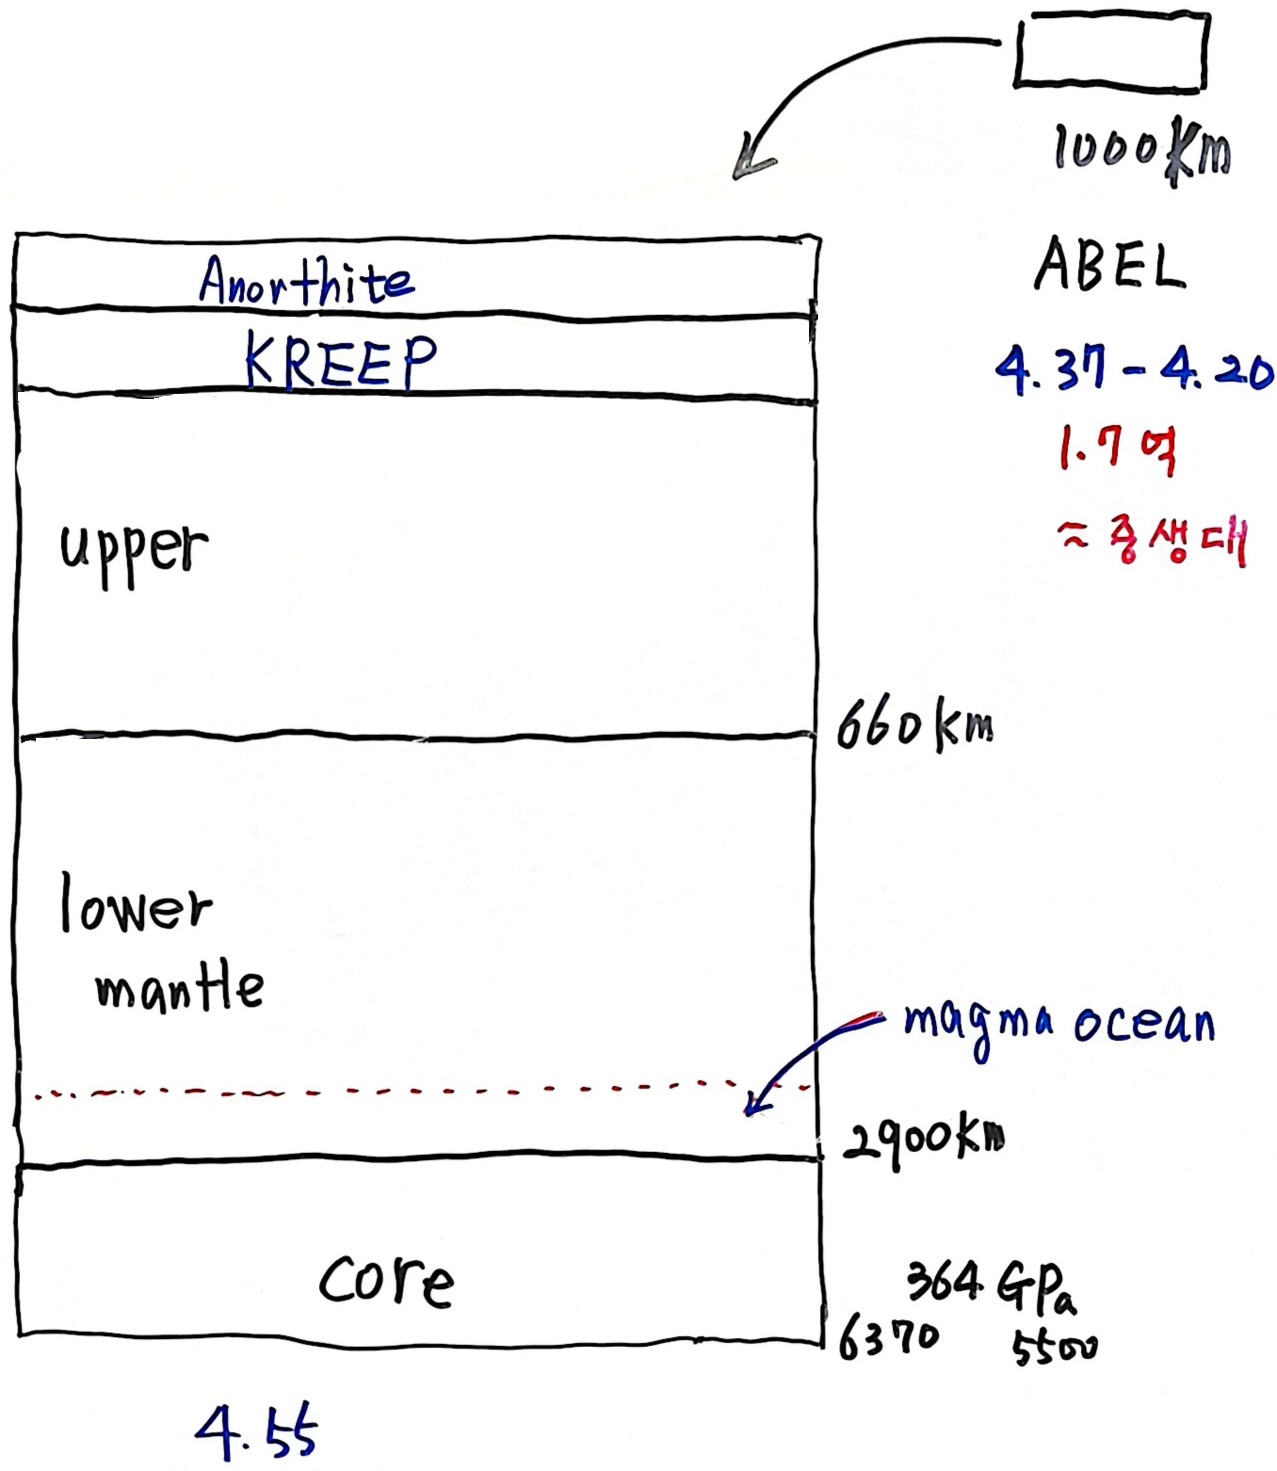 1000km
ABEL
4.37-4.20
1.7억
≈ 중생대
Anorthite
KREEP
upper
660km
lower
mantle
magma ocean
2900km
core
364 GPa
6370 5500
4.55